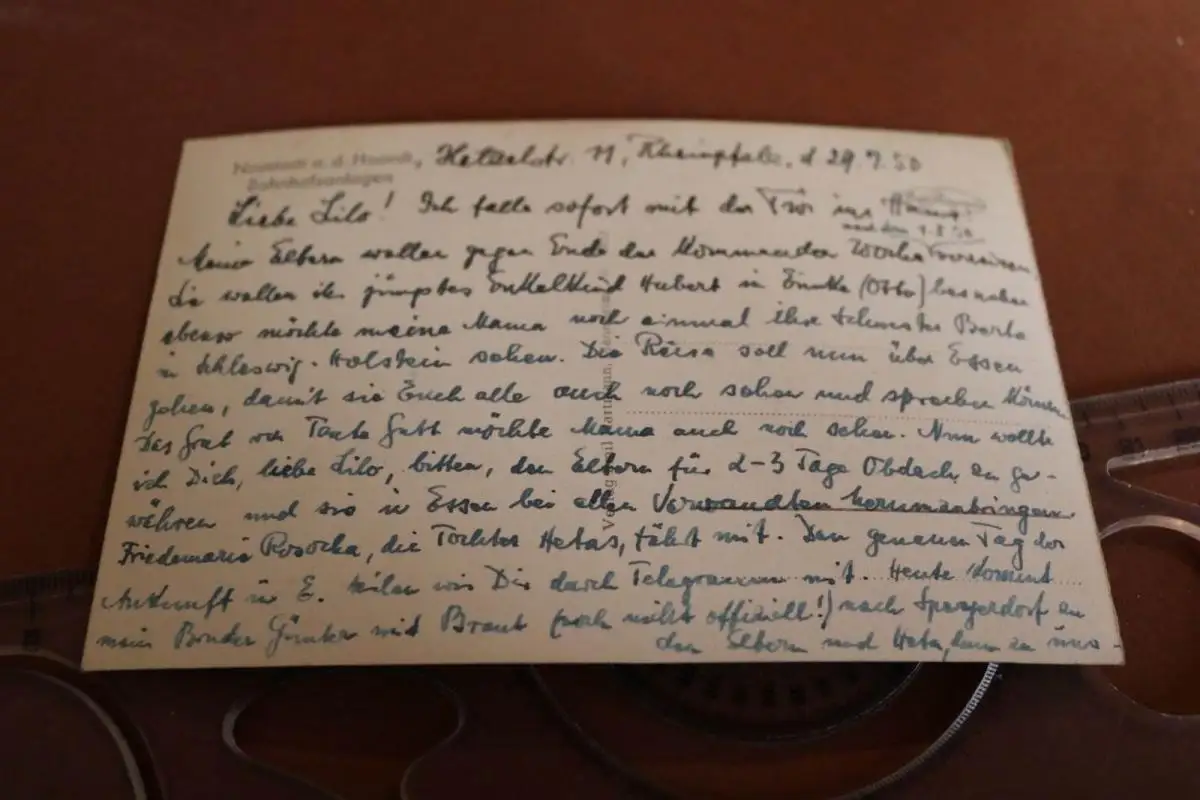 Neustadt a. d. Haardt, Hetzelstr. 11, Rheinpfalz, d 29.7.50
Bahnhofsanlagen
Liebe Lilo! Ich falle sofort mit der Tür ins Haus:
nach dem 1.8.50
Meine Eltern wollen gegen Ende der kommenden Woche verreisen
Sie wollen ihr jüngstes Enkelkind Hubert in (Otto) besuchen
ebenso möchte meine Mama noch einmal ihre Schwester Berta
in Schleswig-Holstein sehen. Die Reise soll nun über Essen
gehen, damit sie Euch alle auch noch sehen und sprechen können
Das Grab von Tante möchte Mama auch noch sehen. Nun wollte
ich Dich, liebe Lilo, bitten, den Eltern für 2-3 Tage Obdach zu ge-
währen und sie in Essen bei allen Verwandten herumzubringen
Friedemarie Rosocha, die Tochter Hetas, fährt mit. Den genauen Tag der
Ankunft in E. teilen wir Dir durch Telegramm mit. Heute kommt
mein Bruder Günter mit Braut (noch nicht offiziell!) nach Speyerdorf zu
den Eltern und Heta, dann zu uns.
Verlag Emil Hartmann,